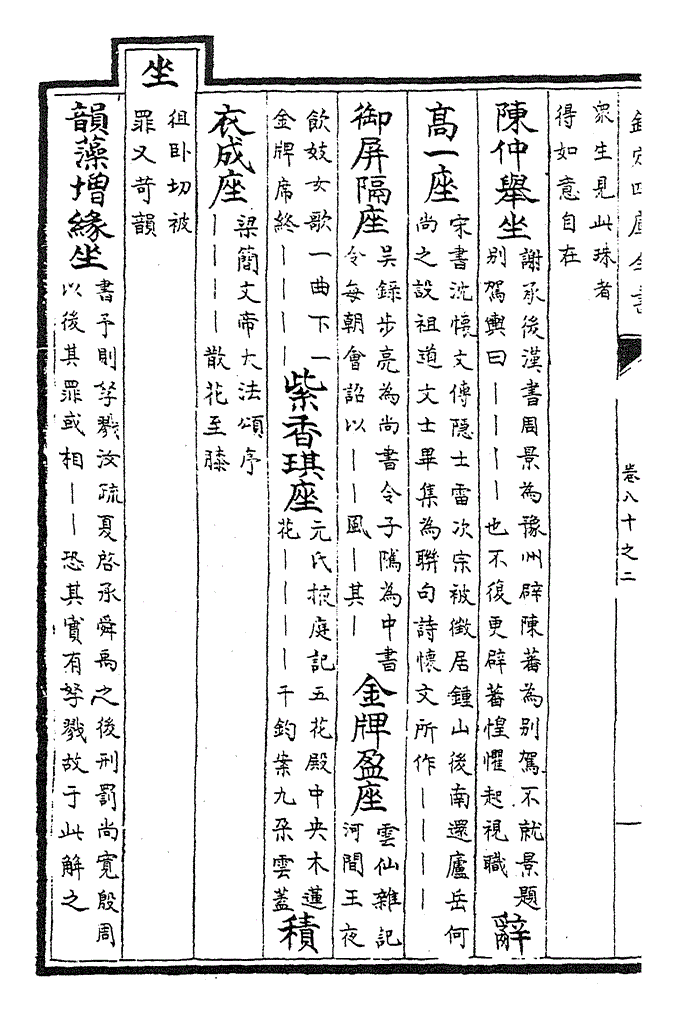 欽定四庫全書 卷八十之二
衆生見此珠者
得如意自在
陳仲舉坐
謝承後漢書周景為豫州辟陳蕃為别駕不就景題
别駕輿曰||||也不復更辟蕃惶懼起視職
辭
髙一座
宋書沈懷文傳隠士雷次宗被徵居鍾山後南還廬岳何
尚之設祖道文士畢集為聯句詩懷文所作||||
御屏隔座
吳録步亮為尚書令子隲為中書
令每朝會詔以||風|其|
金牌盈座
雲仙雜記
河間王夜
飲妓女歌一曲下一
金牌席終||||
紫香琪座
元氏掖庭記五花殿中央木蓮
花||||千鈞案九朶雲蓋
積
衣成座
梁簡文帝大法頌序
||||散花至膝
坐
徂卧切被
罪又苛韻
韻藻增緣坐
書予則孥戮汝疏夏啓承舜禹之後刑罰尚寛殷周
以後其罪或相||恐其實有孥戮故于此解之